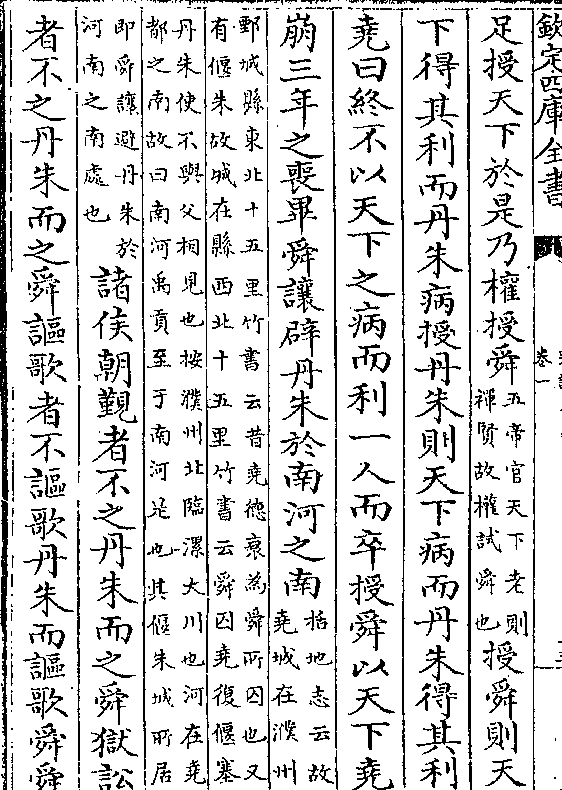 欽定四庫全書
卷一
足授天下於是乃權授舜五帝官天下老則禪賢故權試舜也授舜則天
下得其利而丹朱病授丹朱則天下病而丹朱得其利
堯曰終不以天下之病而利一人而卒授舜以天下堯
崩三年之喪畢舜讓辟丹朱於南河之南括地志云故堯城在濮州
鄄城縣東北十五里竹書云昔堯德衰為舜所囚也又
有偃朱故城在縣西北十五里竹書云舜囚堯復偃塞
丹朱使不與父相見也按濮州北臨漯大川也河在堯
都之南故曰南河禹貢至于南河是也其偃朱城所居
即舜讓避丹朱於河南之南處也諸侯朝覲者不之丹朱而之舜獄訟
者不之丹朱而之舜謳歌者不謳歌丹朱而謳歌舜舜